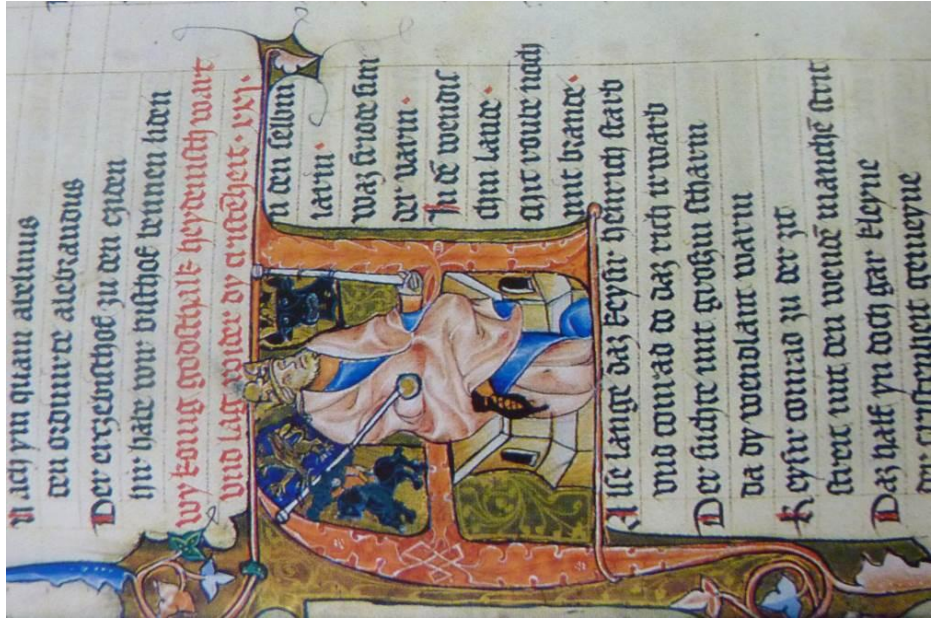 Nach ym quam aweluus
der ordinirte alebrandus
Der erzebischof zu den cziden
hir hate von bischof bennen liden
wy konig godschalk heydenisch wart
vnd lag wider dy cristēheit · xxj ·
In den selbin
iarin ·
waz frode sun
der warin ·
In dē wendis
chin lande ·
mit roube noch
mit brande ·
Alse lange daz keysir heinrich starb
vnd conrad do daz rich irwarb
Der suchte mit grozin scharin
da dy wendlant warin
Keysir conrad zu der zit
streit mit den wendē manchē strit
Daz half yn doch gar kleyne
den cristinlich gemeyne